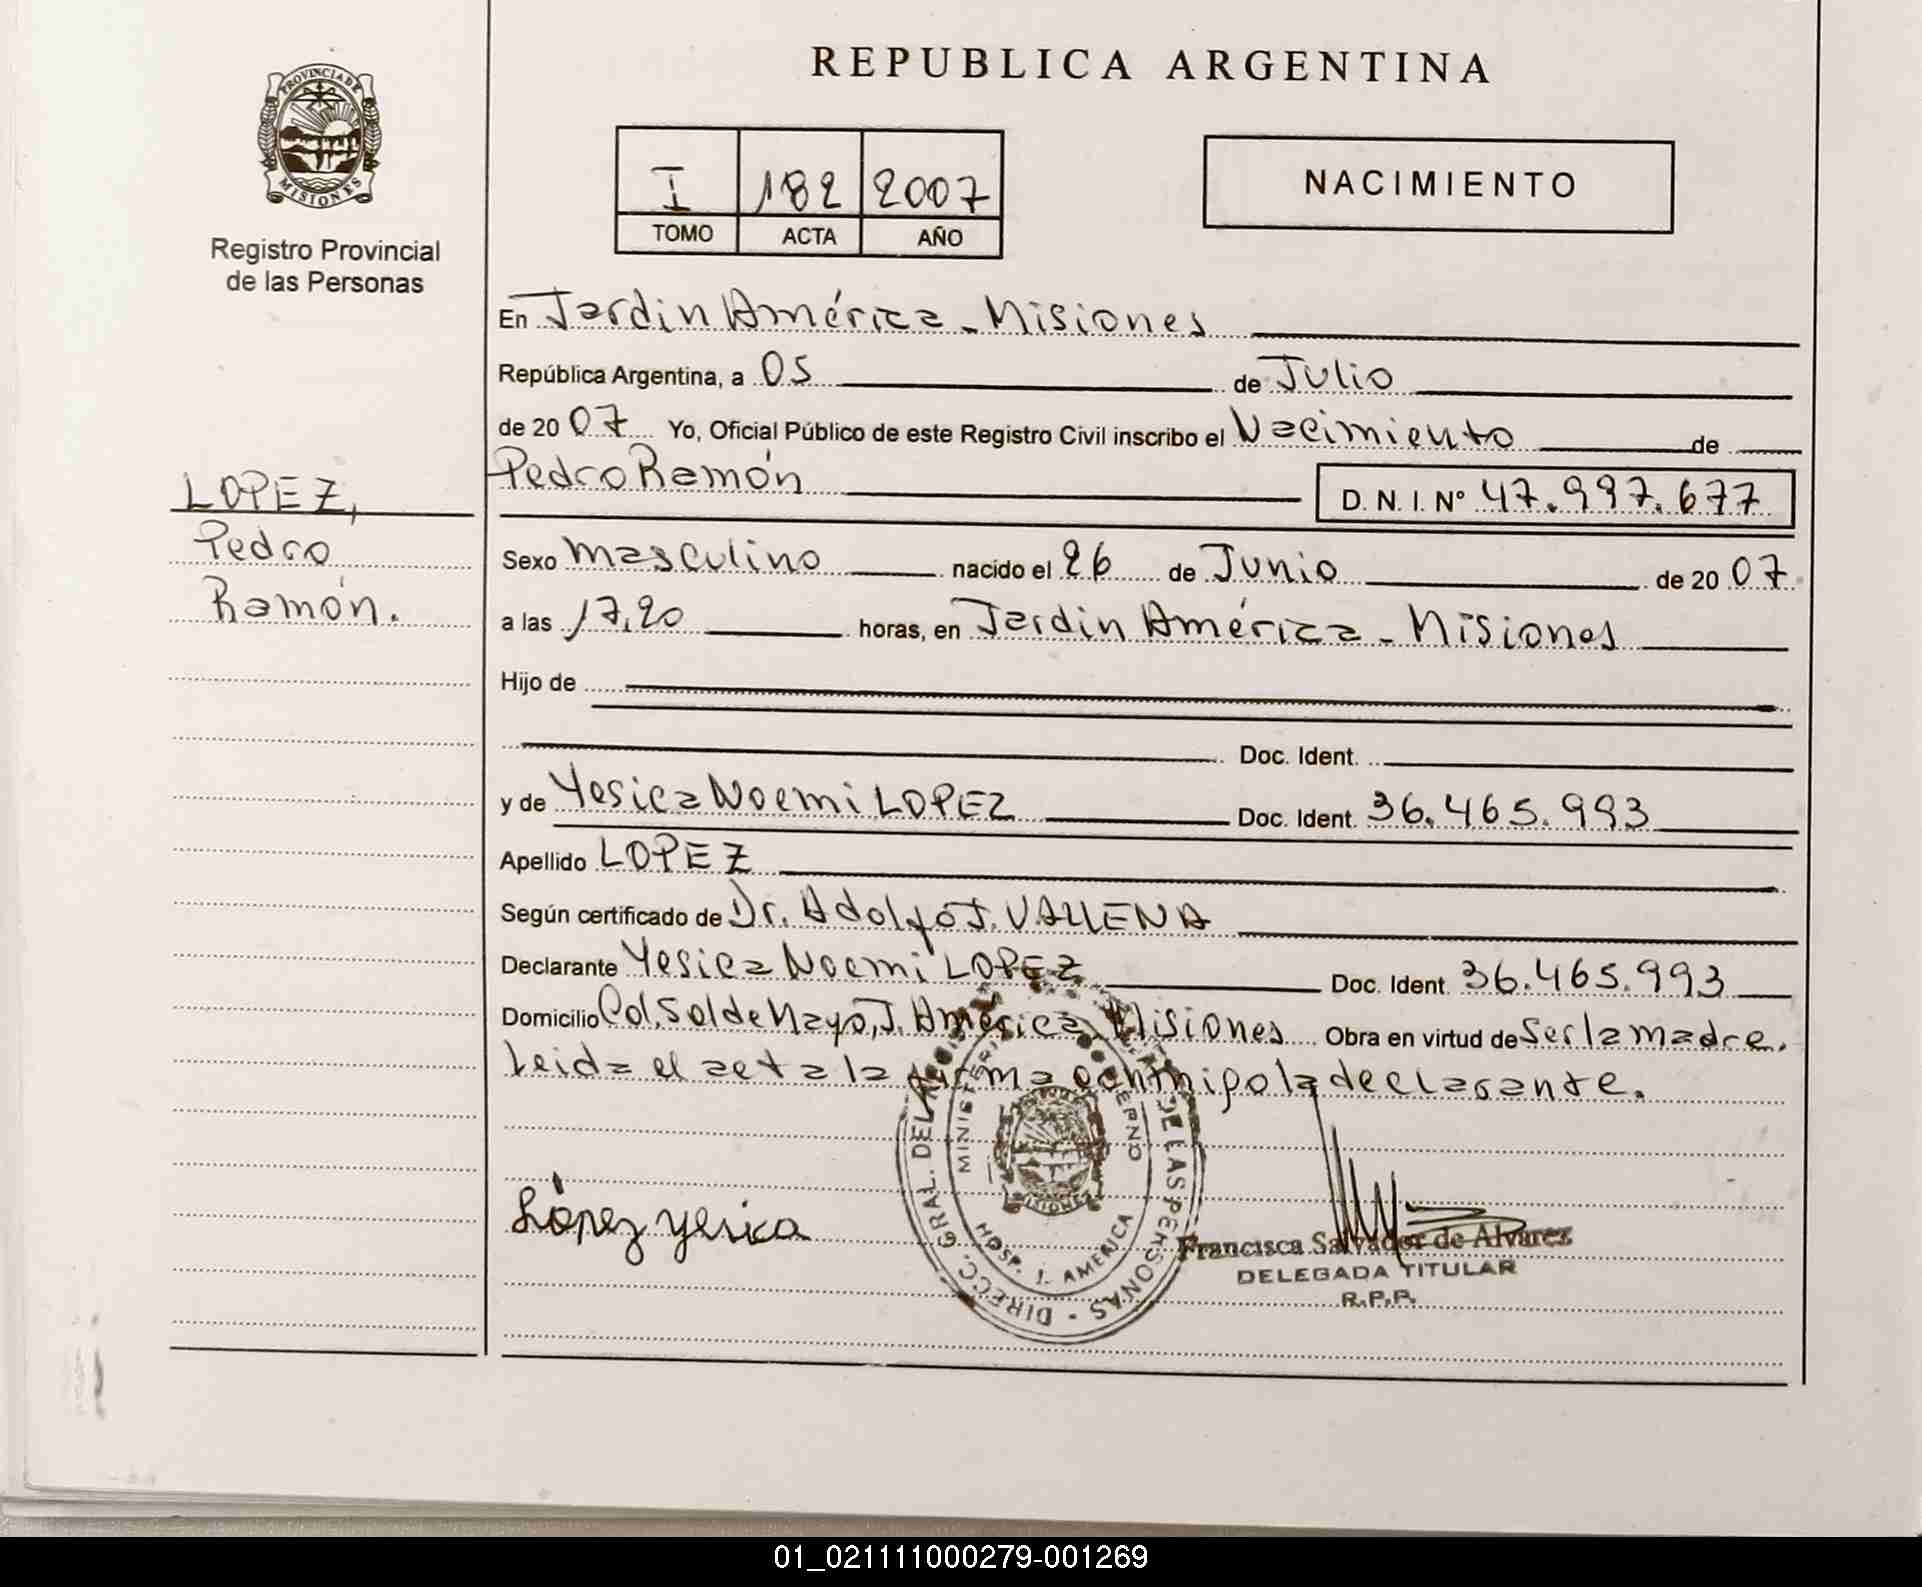 REPUBLICA ARGENTINA
PROVINCIA DE
MISIONES
Registro Provincial
de las Personas
I 182 2007
TOMO ACTA AÑO
NACIMIENTO
En Jardin América - Misiones
República Argentina, a 05 de Julio
de 20 07 Yo, Oficial Público de este Registro Civil inscribo el Nacimiento de
Pedro Ramón D. N. I. Nº 47.997.677
LOPEZ,
Pedro
Ramón.
Sexo masculino nacido el 26 de Junio de 20 07
a las 17,20 horas, en Jardin América - Misiones
Hijo de
Doc. Ident.
y de Yesica Noemi LOPEZ Doc. Ident. 36.465.993
Apellido LOPEZ
Según certificado de Dr. Adolfo J. VALLENA
Declarante Yesica Noemi LOPEZ Doc. Ident. 36.465.993
Domicilio Col. Sol de Mayo, J. América, Misiones Obra en virtud de Ser la madre.
Leida el acta la firma conmigo la declarante.
DIRECC. GRAL. DEL REGISTRO DE LAS PERSONAS
MINISTERIO GOBIERNO
MISIONES
HOSP. J. AMERICA
López Yesica
Francisca Salvador de Alvarez
DELEGADA TITULAR
R.P.P.
01_021111000279-001269